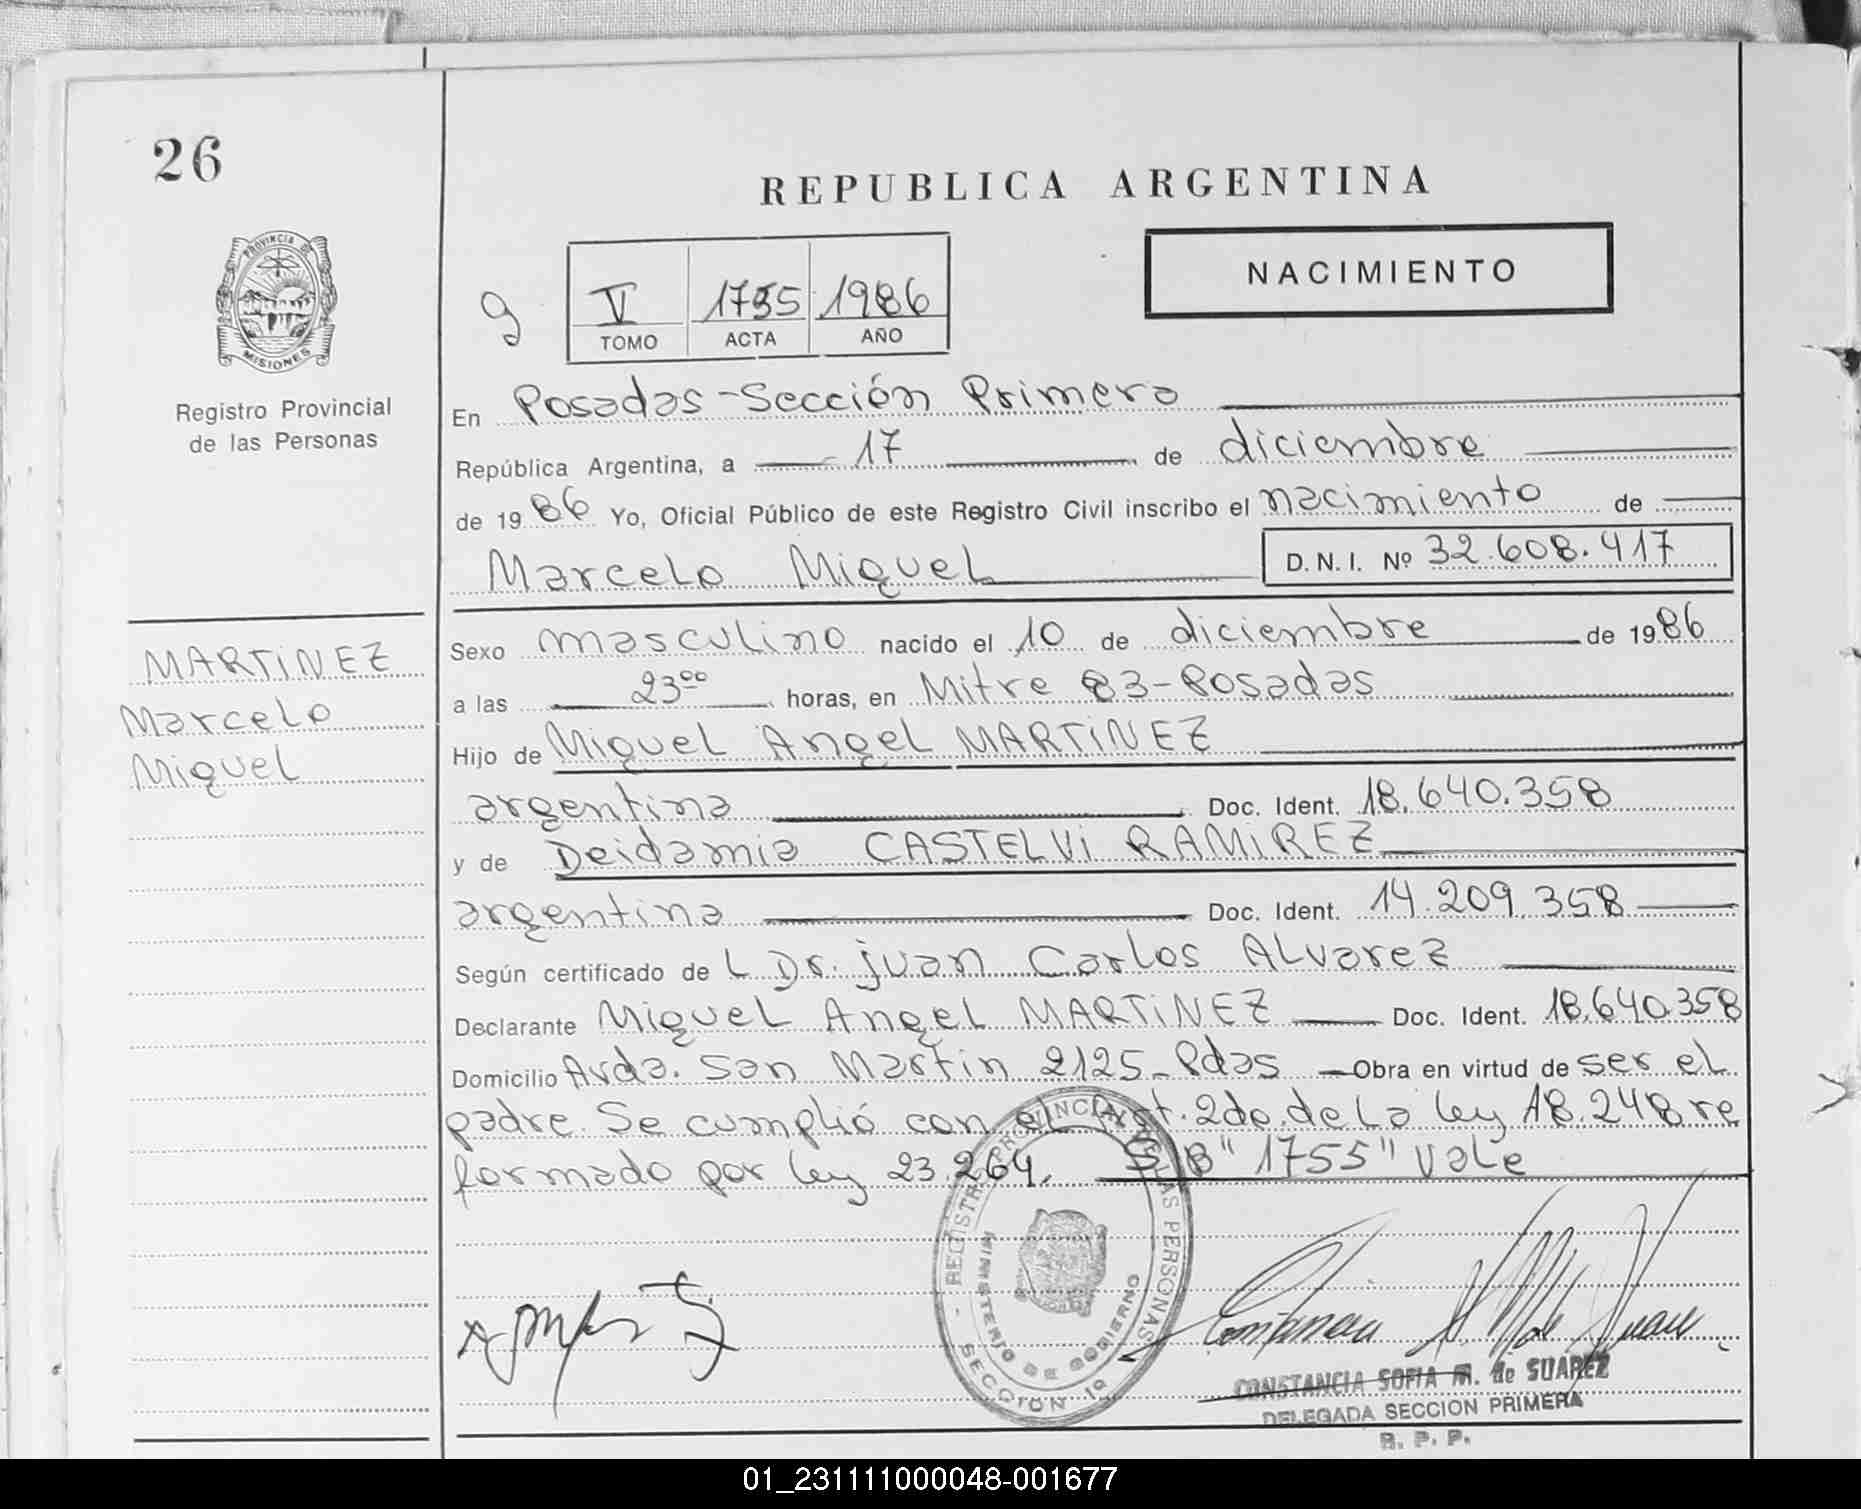 26
REPUBLICA ARGENTINA
PROVINCIA DE
MISIONES
Registro Provincial
de las Personas
NACIMIENTO
g
V 1755 1986
TOMO ACTA AÑO
En Posadas-Sección Primera
República Argentina, a 17 de diciembre
de 1986 Yo, Oficial Público de este Registro Civil inscribo el nacimiento de
Marcelo Miguel D.N.I. Nº 32.608.417
MARTINEZ
Marcelo
Miguel
Sexo masculino nacido el 10 de diciembre de 1986
a las 23 00 horas, en Mitre 83-Posadas
Hijo de Miguel Angel MARTINEZ
argentina Doc. Ident. 18.640.358
y de Deidamia CASTELVI RAMIREZ
argentina Doc. Ident. 14.209.358
Según certificado de L Dr. juan Carlos ALvarez
Declarante Miguel Angel MARTINEZ Doc. Ident. 18.640.358
Domicilio Avda. San Martin 2125-Pdas Obra en virtud de ser el
padre. Se cumplió con el Art. 2do. de la ley 18.248 re
formado por ley 23.264. S/B "1755" Vale
REGISTRO PROVINCIAL DE LAS PERSONAS
MINISTERIO DE GOBIERNO
SECCION 1ª
CONSTANCIA SOFIA M. de SUAREZ
DELEGADA SECCION PRIMERA
R. P. P.
01_231111000048-001677